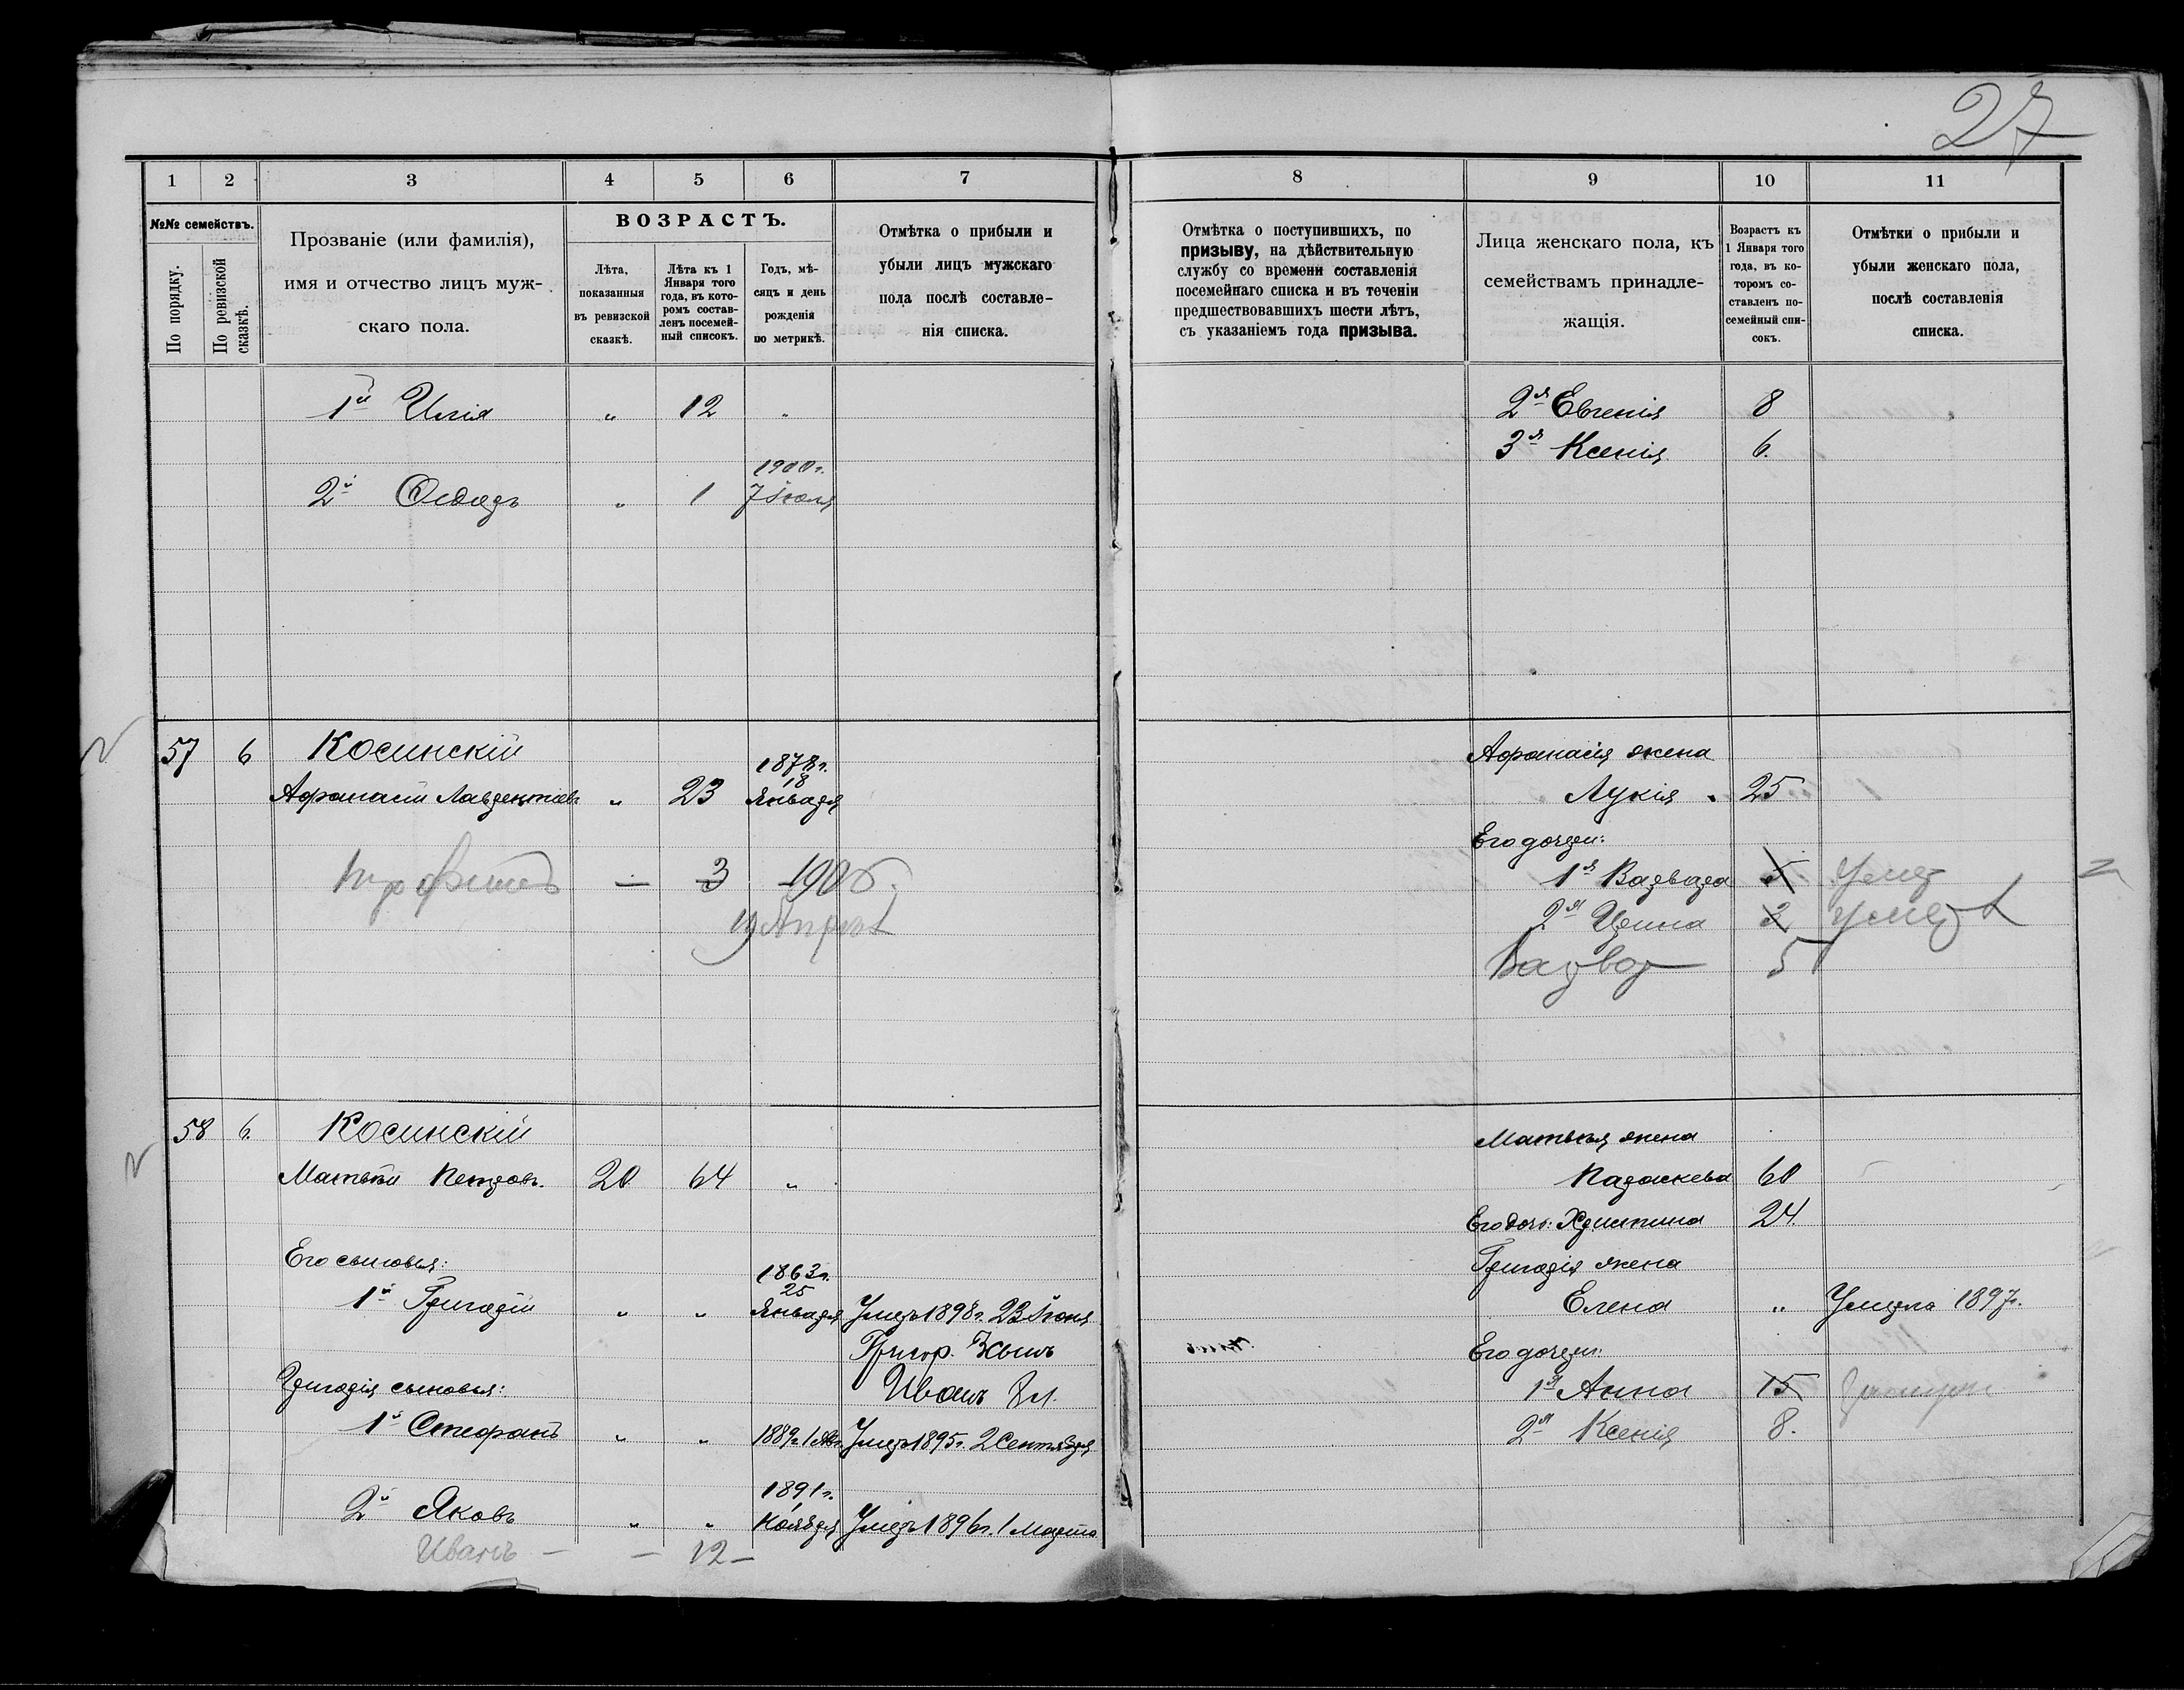 27
1 2 3 4 5 6 7
№№ семействъ.
По порядку.
По ревизской сказкѣ.
Прозваніе (или фамилія),
имя и отчество лицъ муж-
скаго пола.
ВОЗРАСТЪ.
Лѣта,
показанныя
въ ревизской
сказкѣ.
Лѣта къ 1
Января того
года, въ кото-
ромъ состав-
ленъ посемей-
ный списокъ.
Годъ, мѣ-
сяцъ и день
рожденія
по метрикѣ.
Отмѣтка о прибыли и
убыли лицъ мужскаго
пола послѣ составле-
нія списка.
1й Илія „ 12 „
1900г.
2й Ѳеодоръ „ 1 7 Іюля
57 6 Косинскій
1878г.
18
Афанасій Лаврентіевъ „ 23 Января
Трофимъ — 3 1906
19 Апрѣл
58 6. Косинскій
Матвѣй Петровъ. 20 64 „
Его сыновья:
1863г.
25
1й Григорій „ „ Января Умеръ 1898г. 23 Іюня
Григор. сынъ
Иванъ 8 л.
Григорія сыновья:
1й Стефанъ „ „ 1889г. 1 Авг. Умеръ 1895г. 2 Сентября
1891г.
1
2й Яковъ „ „ Ноября Умеръ 1896г. 1 Марта
Иванъ — — 12 —
8 9 10 11
Отмѣтка о поступившихъ, по
призыву, на дѣйствительную
службу со времени составленія
посемейнаго списка и въ теченіи
предшествовавшихъ шести лѣтъ,
съ указаніемъ года призыва.
Лица женскаго пола, къ
семействамъ принадле-
жащія.
Возрастъ къ
1 Января того
года, въ ко-
торомъ со-
ставленъ по-
семейный спи-
сокъ.
Отмѣтки о прибыли и
убыли женскаго пола,
послѣ составленія
списка.
2я Евгенія 8
3я Ксенія 6.
Афанасія жена
Лукія 25
Его дочери:
1я Варвара 5 Умер
2я Ирина 2 Умерл
Варвар 5
Матвѣя жена
Параскева 60
Его дочь: Христина 24.
Григорія жена
Елена „ Умерла 1897г.
Его дочери:
1я Анна 15
2я Ксенія 8.